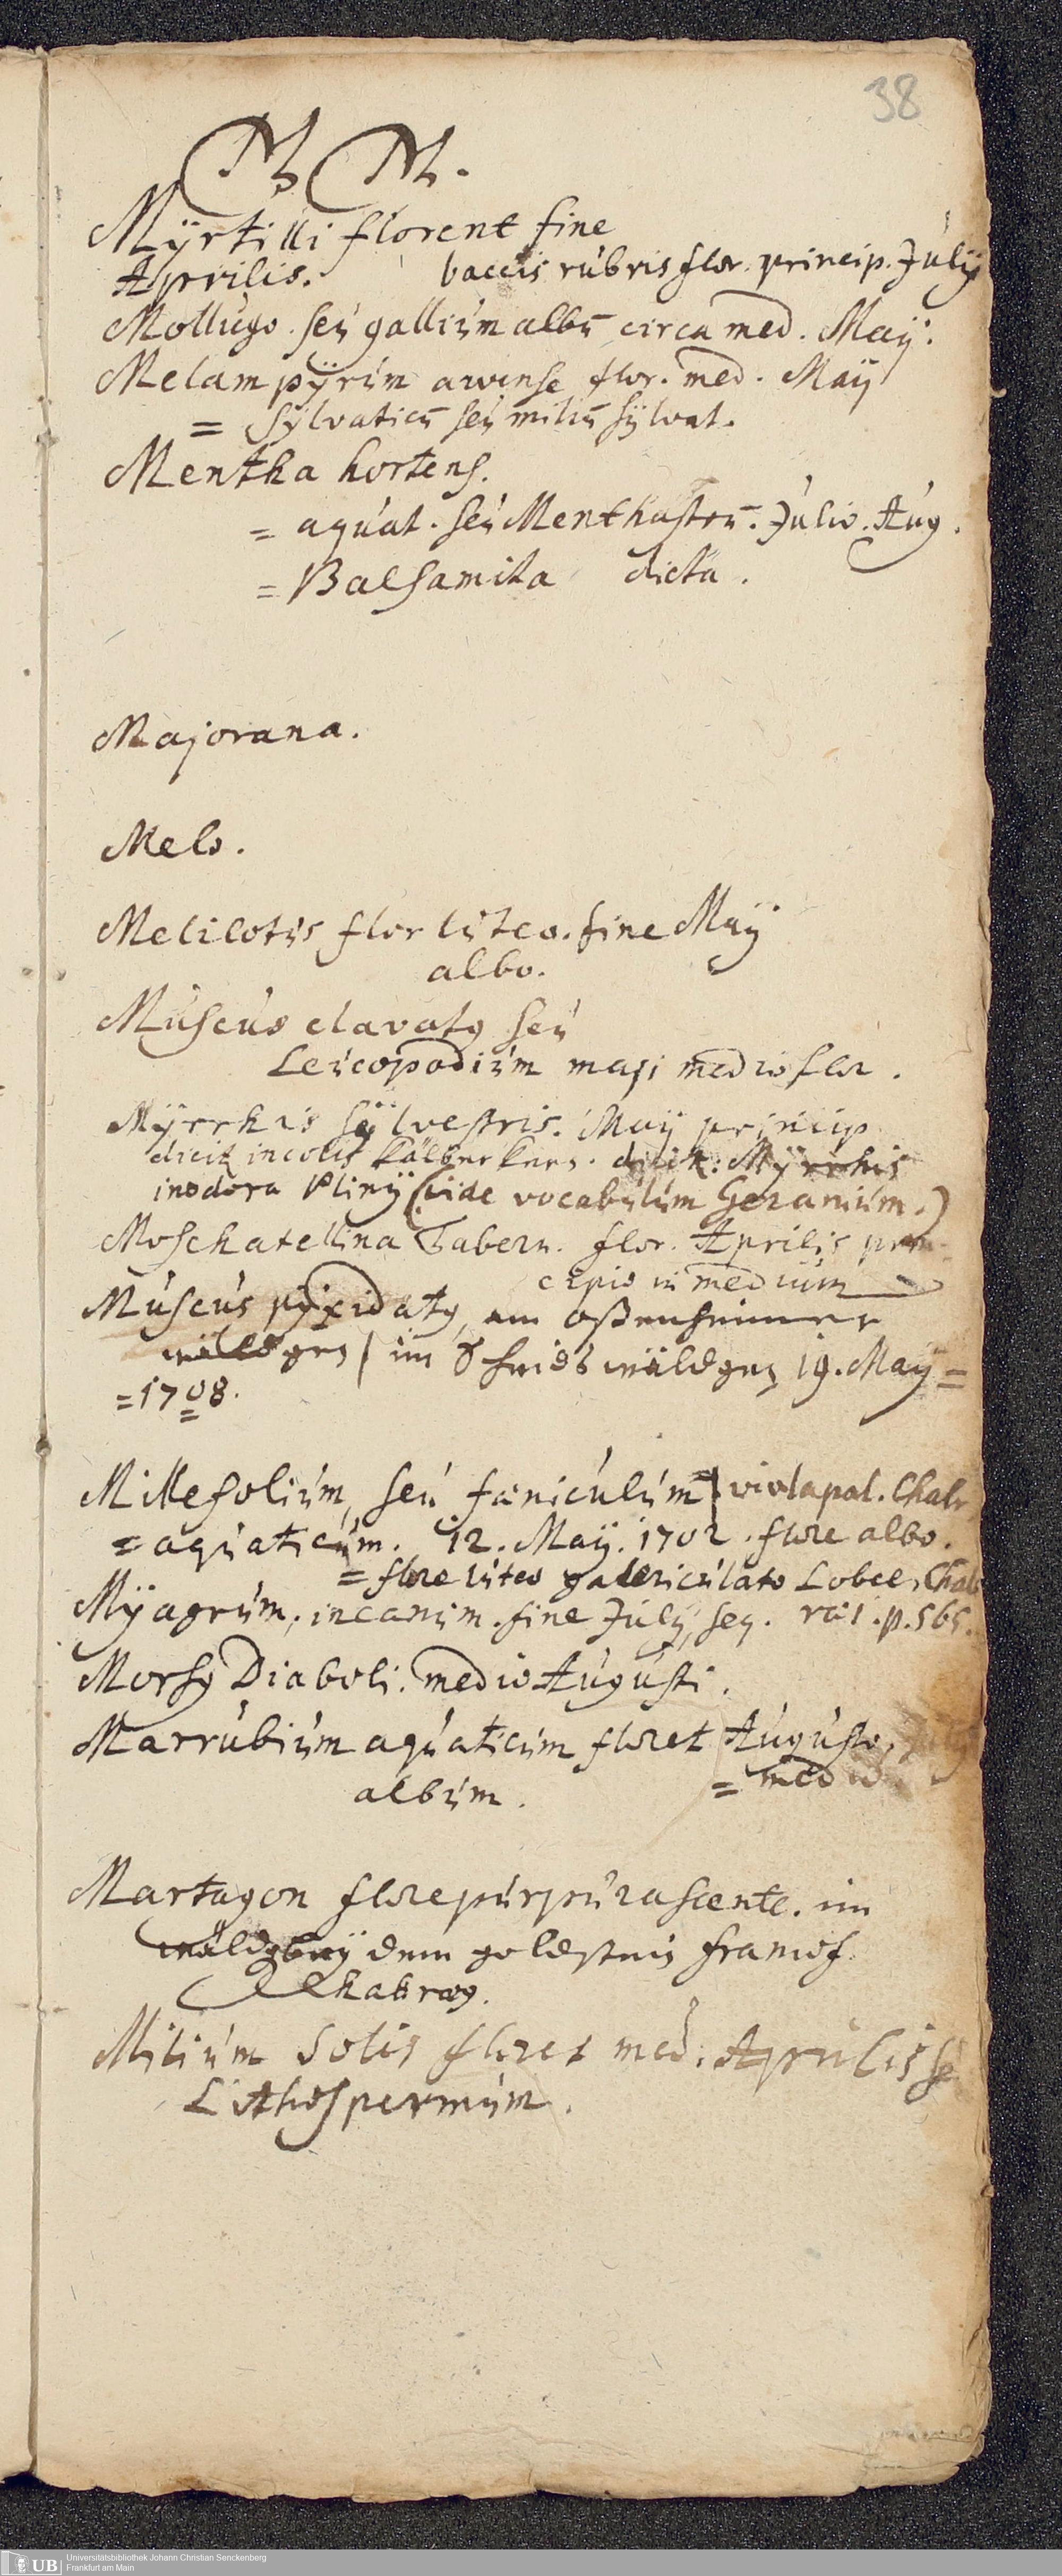 38
M M.
Myrtilli florent fine
Aprilis. baccis rubris flor. princip. Julij
Mollugo. seu gallium albū circa med. Maÿ.
Melampÿrum arvense flor. med. Maÿ
= Sÿlvaticū seu miliū sÿlvat.
Mentha hortens.
= aquat. seu Menthastrū. Julio. Aug.
= Balsamita dicta.
Majorana.
Melo.
Melilotus flor luteo. fine Maÿ
albo.
Muscus clavatg seu
Leucopodium maji medio flor.
Mÿrrhis sÿlvestris. Maÿ princip
incolis Kälber Kern. Mÿrrhis
inodora Plinÿ (vide vocabulum Geranium.)
Moschatellina Tabern. flor. Aprilis prin-
cipio in medium
Muscus pÿxidatg, am
wäldgen / im wäldgen 19. Maÿ =
= 1708.
Millefolium, seu fæniculum viola pal. Chabr
= aquaticum. 12. Maÿ. 1702. flore albo.
= flore luteo galericulato Lobel. Chab
Mÿagrum, incanum. fine Julÿ, seq. rai. p. 565.
Morsg Diaboli. medio Augusti.
Marrubium aquaticum floret Augusto,
album. = medio
Martagon flore purpurascente. im
wäldg beÿ dem goldstein
Chabræg.
Milium Solis floret med. Aprilis
Lithospermum.
UB Universitätsbibliothek Johann Christian Senckenberg
Frankfurt am Main